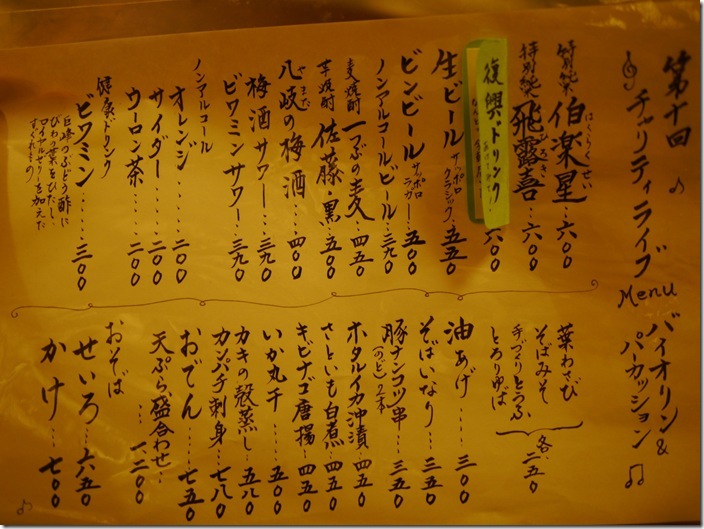 第十回
チャリティライブ
Menu
バイオリン&
パーカッション
特別純米 伯楽星…六〇〇
はくらくせい
特別純米 飛露喜…六〇〇
復興ドリンク
生ビール サッポロクラシック…五五〇
ビンビール サッポロラガー…五〇〇
ノンアルコールビール…三九〇
麦焼酎 一つぶの麦…四五〇
芋焼酎 佐藤 黒…五〇〇
八岐の梅酒…四〇〇
やまた
梅酒サワー…三九〇
ビワミンサワー…三九〇
ノンアルコール
オレンジ…二〇〇
サイダー…二〇〇
ウーロン茶…二〇〇
健康ドリンク
ビワミン…三〇〇
巨峰のぶどう酢に
びわの葉をひたし、
ロイヤルゼリーを加えた
すぐれもの!
葉わさび
そばみそ
手づくりとうふ
とろりゆば
各 二五〇
油あげ…三〇〇
そばいなり…三五〇
豚ナンコツ串…三五〇
(のど)2本
ホタルイカ沖漬…四五〇
さといも白煮…四五〇
キビナゴ唐揚…四五〇
いか丸干…五〇〇
カキの殻蒸し…五八〇
カンパチ刺身…七八〇
おでん…七五〇
天ぷら盛合わせ…一、二〇〇
おそば
せいろ…六五〇
かけ…七〇〇